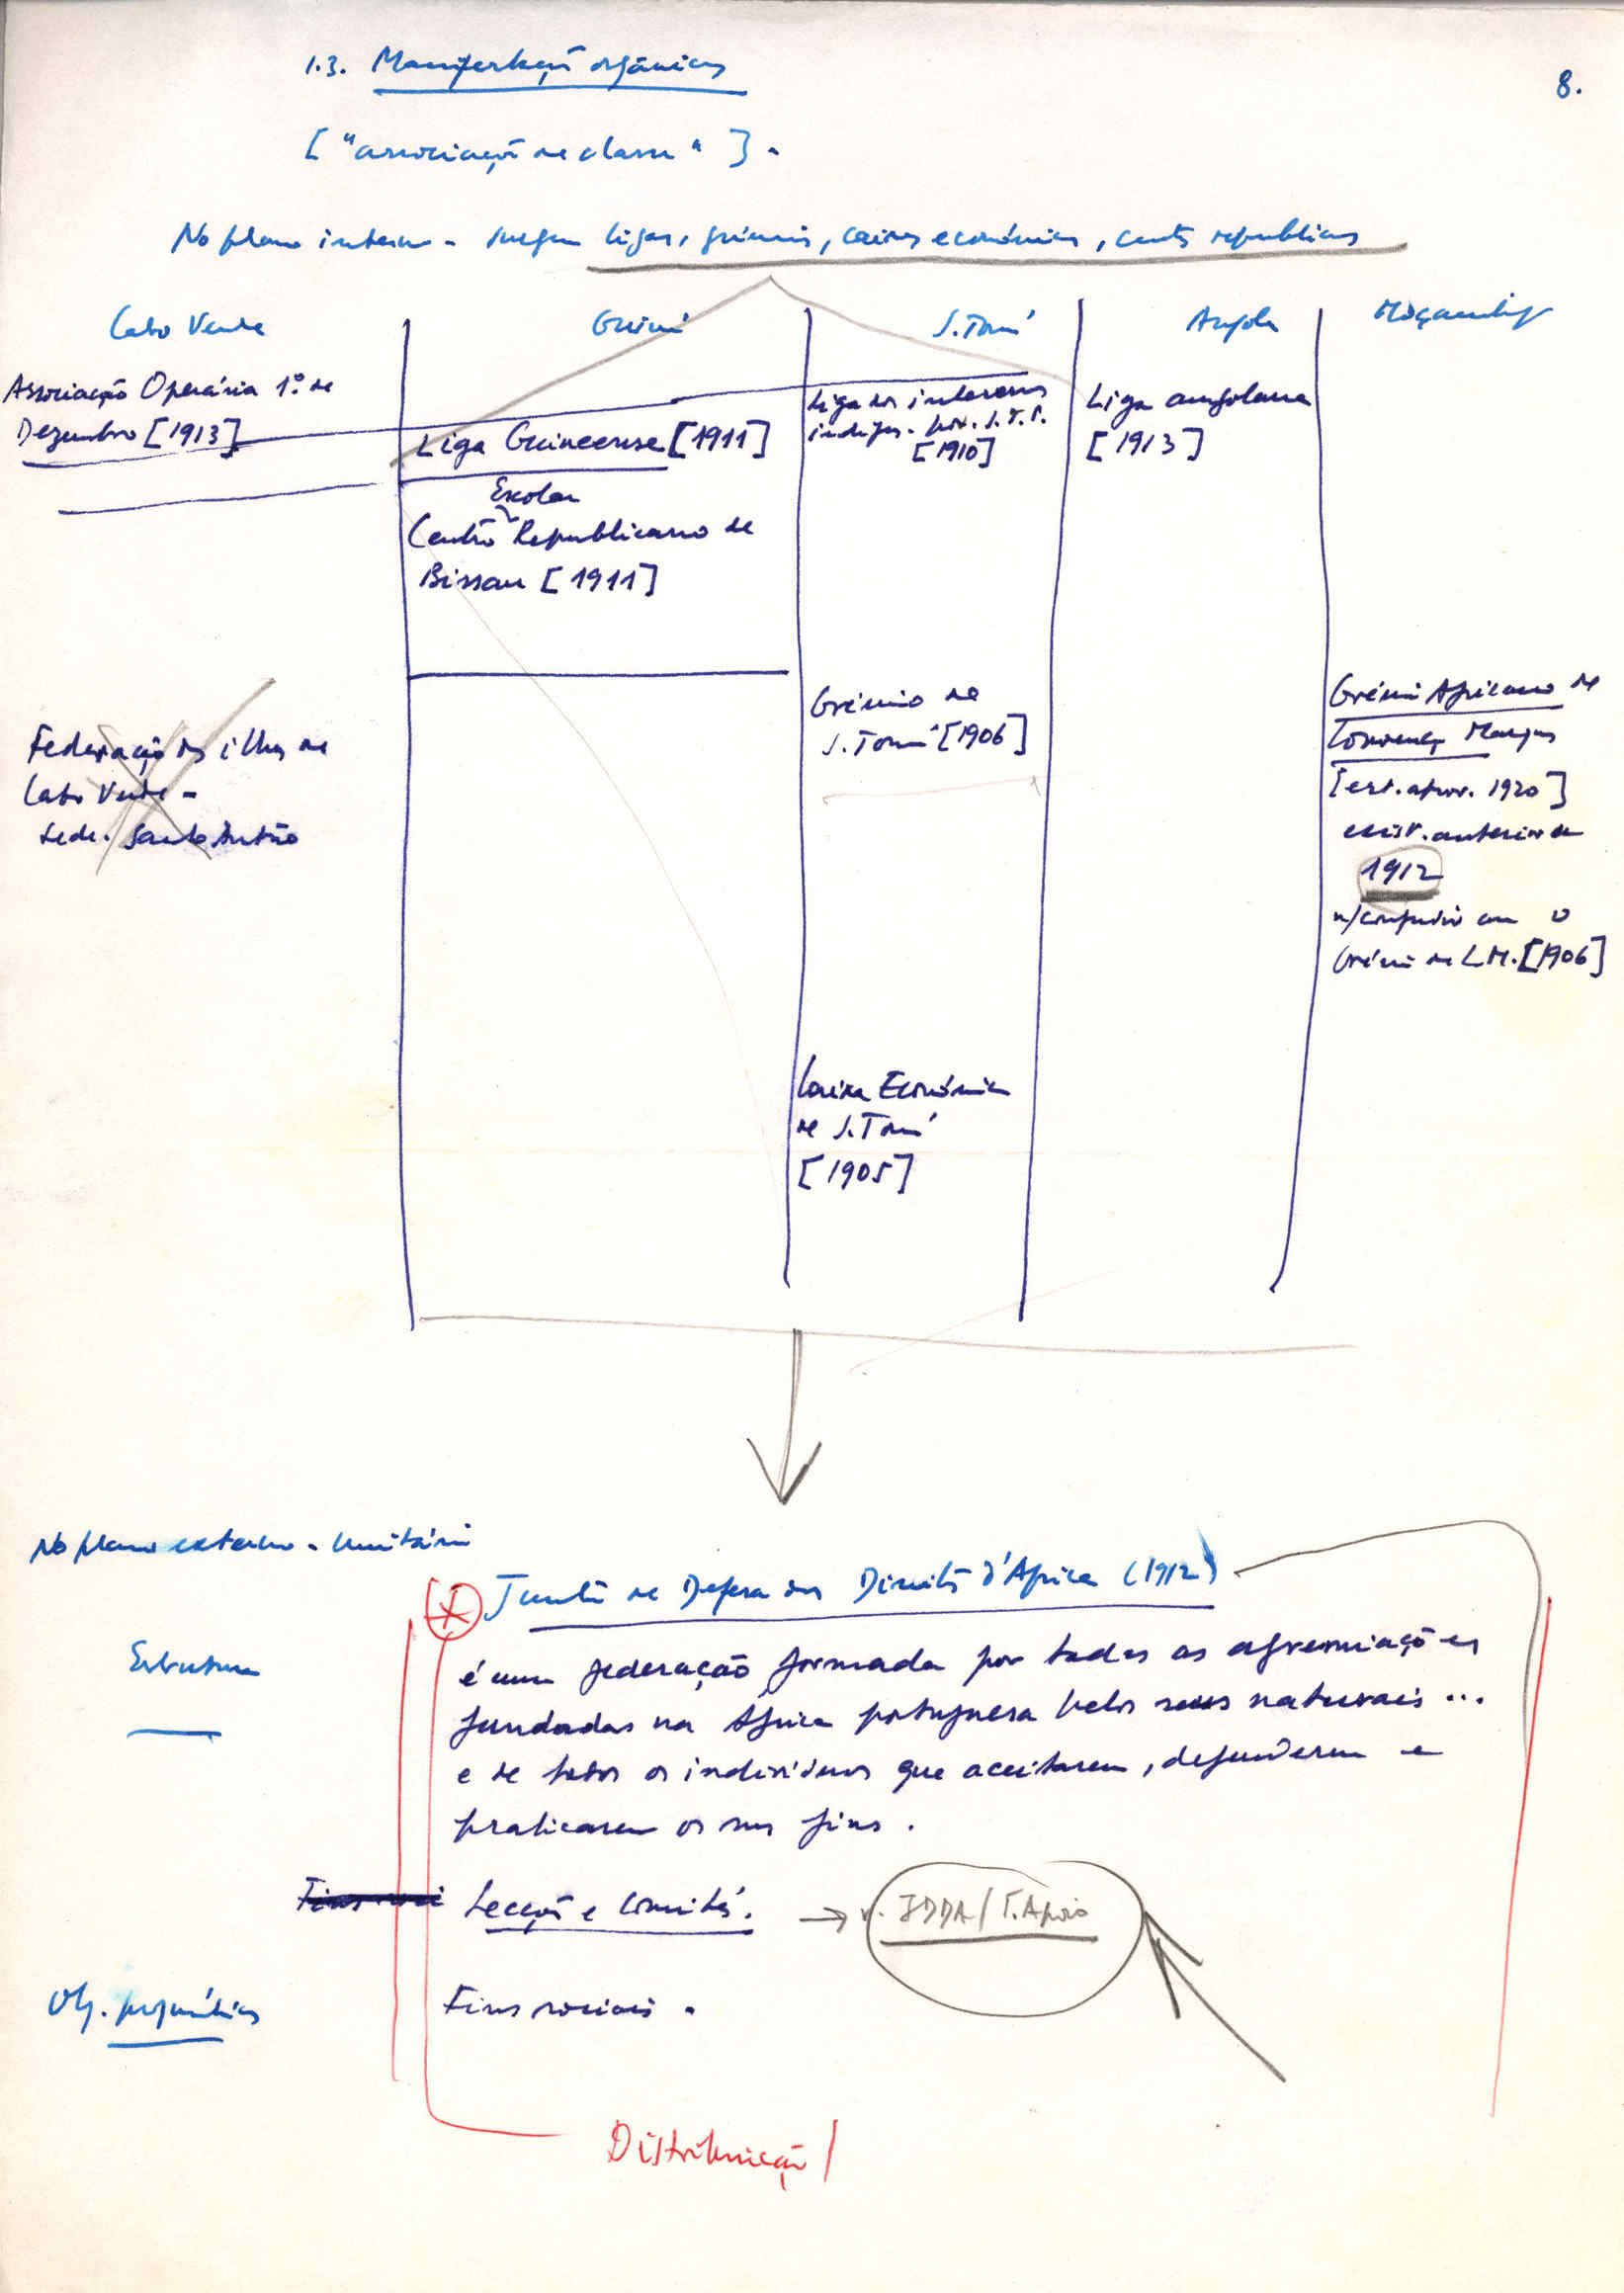 8.
1.3. Manifestaçõ orgânicas
["associaçõ de classe"].
No plano interno - surgem ligas, grémios, caixas económicas, centros republicanos
Cabo Verde
Guiné
S. Tomé
Angola
Moçambique
Associação Operária 1º de
Dezembro [1913]
Liga Guineense [1911]
Escolar
Centro Republicano de
Bissau [1911]
Liga dos interesses
indígs. prov. S.T.P.
[1910]
Liga angolana
[1913]
Federação das ilhas de
Cabo Verde -
sede. Santo Antão
Grémio de
S. Tomé [1906]
Grémio Africano de
Lourenço Marques
[est. aprov. 1920]
exist. anterior a
1912
n/confundir com o
Grémio de L.M. [1906]
Caixa Económica
de S. Tomé
[1905]
No plano externo - unitário
Junta de Defesa dos Direitos d'Africa (1912)
Estrutura
é uma federação formada por todas as agremiações
fundadas na África portuguesa pelos seus naturais ...
e de todos os indivíduos que aceitarem, defenderem e
praticarem os seus fins.
Secçõ e comités. → v. JDDA/T. Apoio
Obj. programáticos
Fins sociais -
Distribuição/